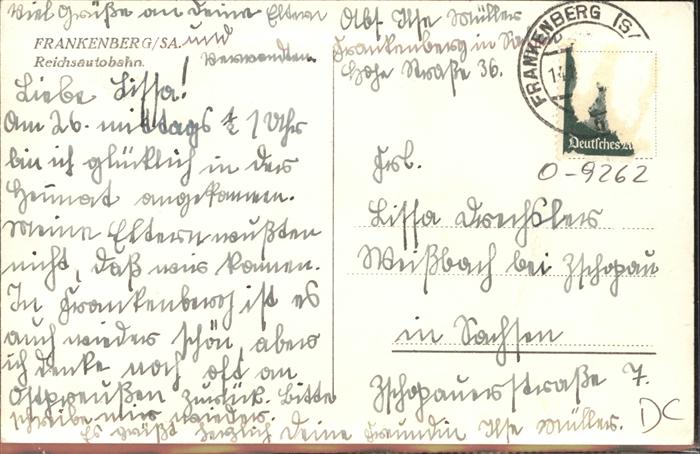 Viel Grüße an Deine Eltern
und
Verwandten.
FRANKENBERG/SA.
Reichsautobahn.
Liebe Lissa!
Am 26. mittags ½ 1 Uhr
bin ich glücklich in der
Heimat angekommen.
Meine Eltern wußten
nicht, daß wir kamen.
In Frankenberg ist es
auch wieder schön, aber
ich denke noch oft an
Ostpreußen zurück. Bitte
schreibe mir wieder.
Es grüßt herzlich Deine Freundin Ilse Müller.
Abs. Ilse Müller
Frankenberg in Sa.
Hohe Straße 36.
FRANKENBERG (S
14
Deutsches
O-9262
Frl.
Lissa Drechsler
Weißbach bei Zschopau
in Sachsen
Zschopauerstraße 7.
DC